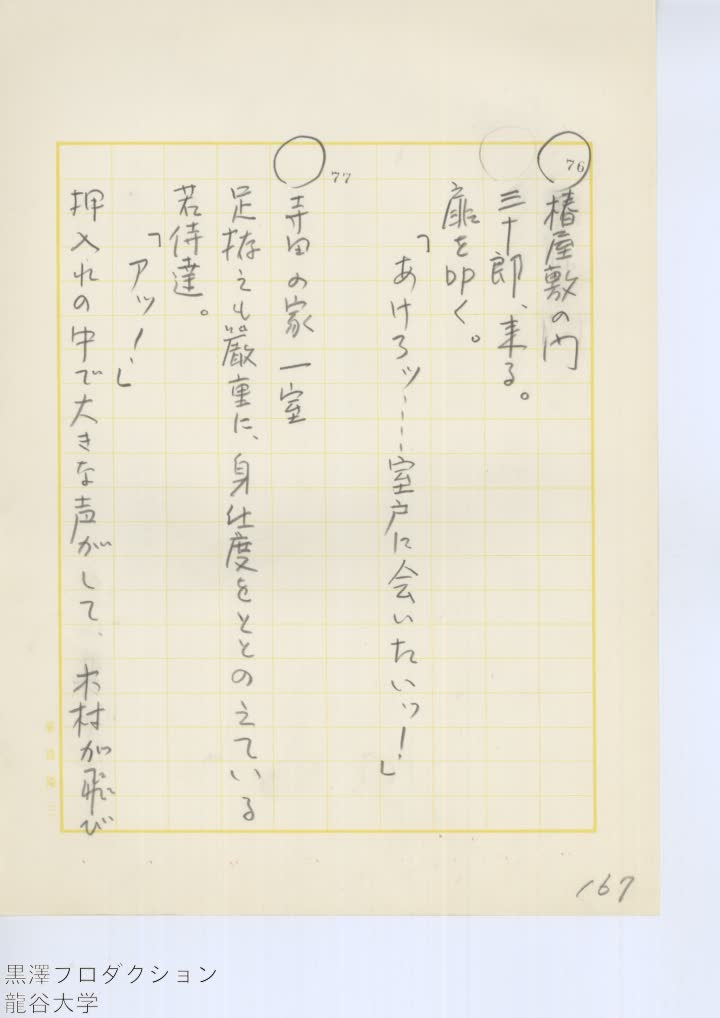 76
椿屋敷の門
三十郎、来る。
扉を叩く。
「あけろッ……室戸に会いたいッ!」
77
寺田の家 一室
足拵えも厳重に、身仕度をととのえている
若侍達。
「アッ!」
押入れの中で大きな声がして、木村が飛び
167
黒澤プロダクション
龍谷大学